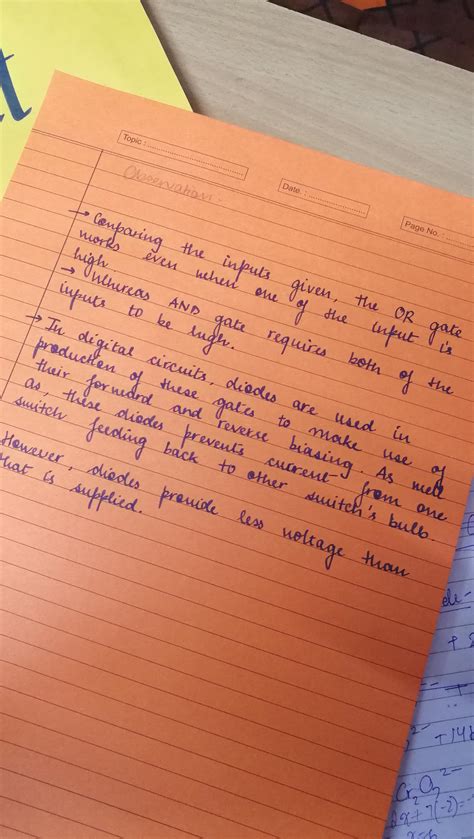 t
Topic :
Date :
Page No. :
Observation:
→ Comparing the inputs given, the OR gate
works even when one of the input is
high.
→ Whereas AND gate requires both of the
inputs to be high.
→ In digital circuits, diodes are used in
production of these gates to make use of
their forward and reverse biasing. As well
as, these diodes prevents current from one
switch feeding back to other switch's bulb.
However, diodes provide less voltage than
that is supplied.